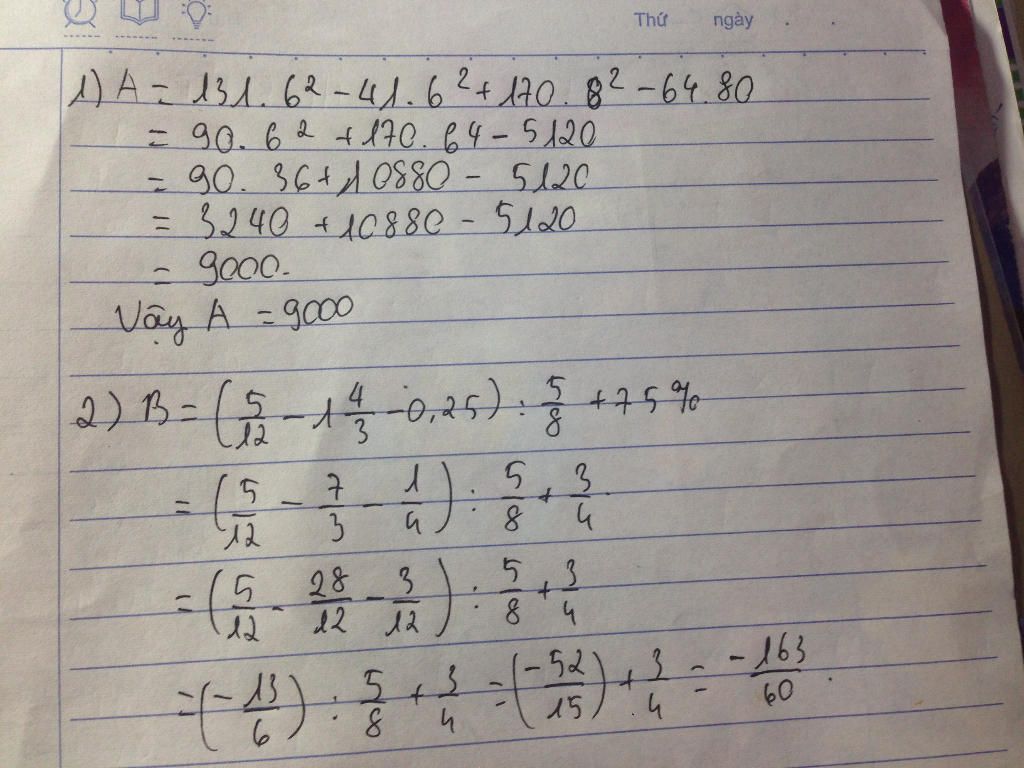 Thứ ngày . .
1) A = 131. 6² - 41. 6² + 170. 8² - 64. 80
= 90. 6² + 170. 64 - 5120
= 90. 36 + 10880 - 5120
= 3240 + 10880 - 5120
= 9000.
Vậy A = 9000
2) B = (5/12 - 1 4/3 - 0,25) : 5/8 + 75%
= (5/12 - 7/3 - 1/4) : 5/8 + 3/4.
= (5/12 - 28/12 - 3/12) : 5/8 + 3/4
= (-13/6) : 5/8 + 3/4 = (-52/15) + 3/4 = -163/60.